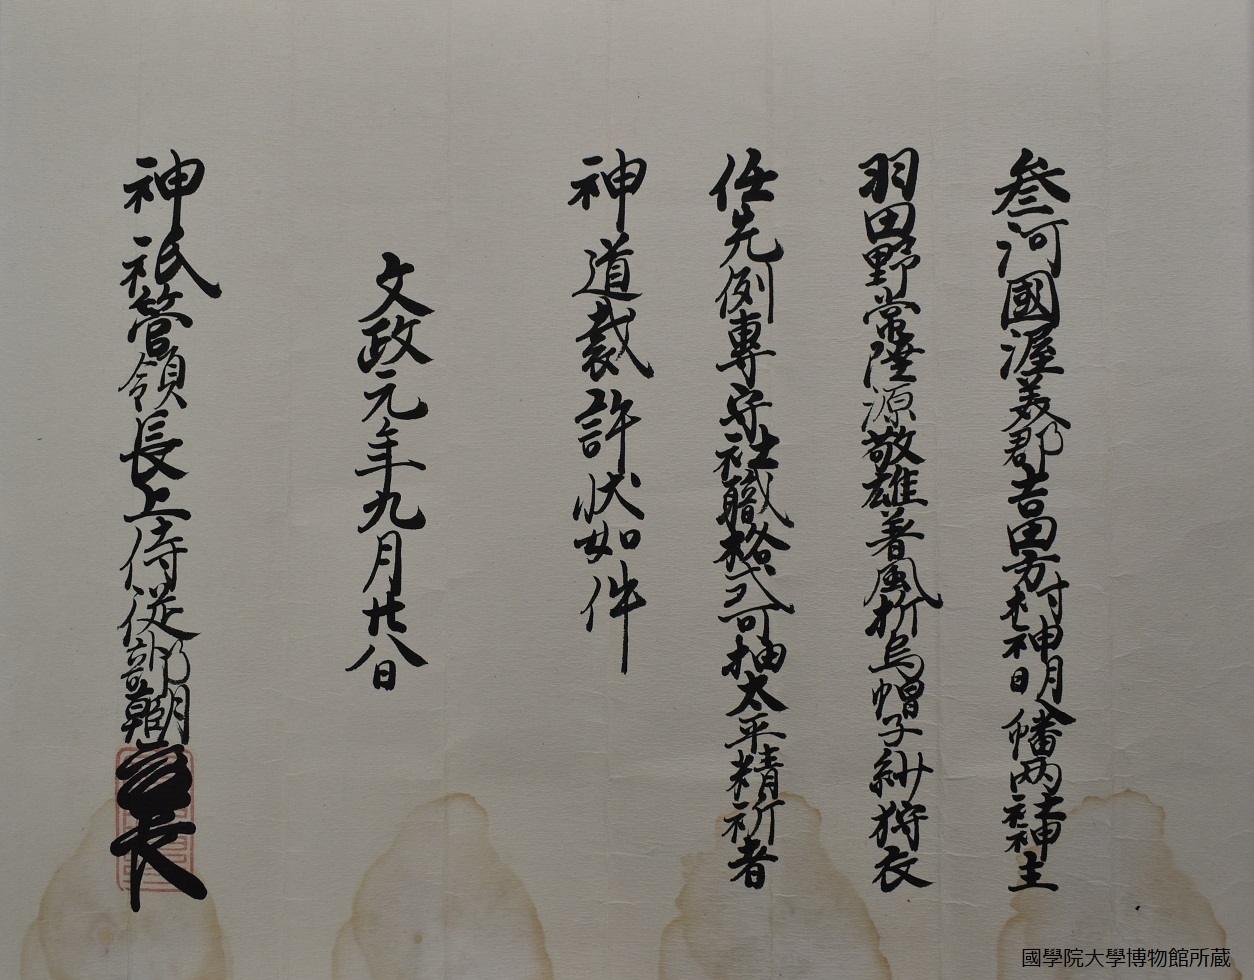 叅河國渥美郡吉田方村神明八幡両社神主
羽田野常陸源敬雄着風折烏帽子紗狩衣
任先例專守社職格式可抽太平精祈者
神道裁許状如件
文政元年九月廿八日
神祇管領長上侍従卜部朝臣良長
國學院大學博物館所蔵